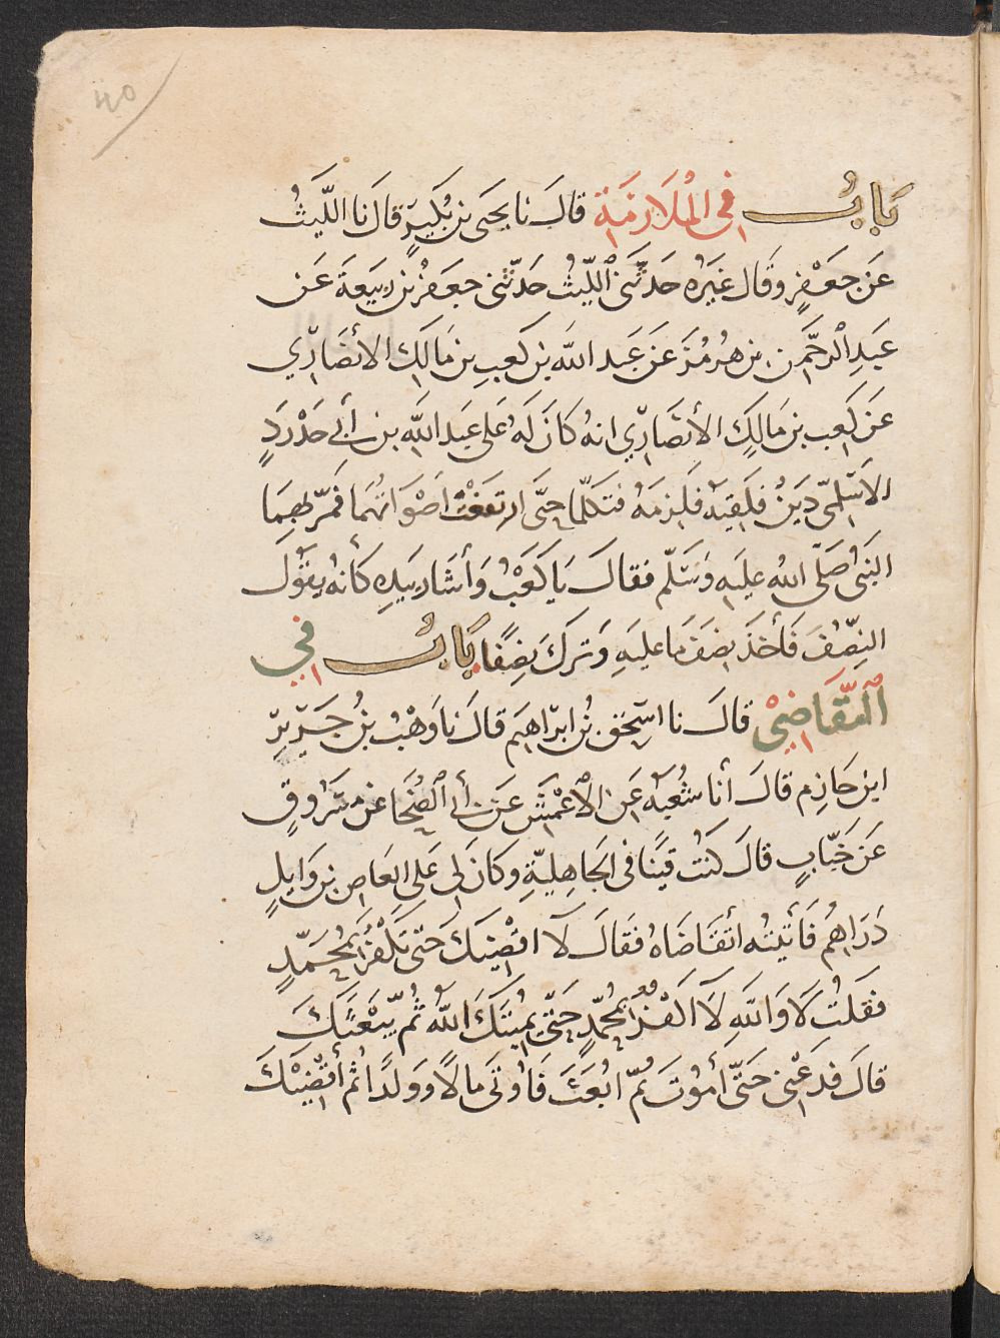 ٤٥
بَابُ فِي الْمُلَازَمَةِ قالَ نا يحيَى بن بُكَيرٍ قالَ نا اللَّيثُ
عَن جعَفرٍ وقَال غيَرُه حَدثَّنى اللَّيثُ حَدثَّنى جعَفرُ بن ربيعَةَ عَن
عَبدِ الرحَّمن بن هُرمُزَ عَن عَبد الله بن كَعبِ بن مَالكِ الانصَارِّي
عَن كَعب بن مَالكٍ الأنصَارِّي انهُ كانَ لَه عَلى عَبد اللَّه بن أبي حَدْرَدٍ
الاسَلمىّ دَينٌ فلَقيَه فلَزمَهُ فتكلّما حتَّى ارتفعَتْ اصْوَاتُهُما فمرّ بِهِمَا
النبىُّ صَلّى اللهُ عليَه وسَلّم فقالَ يَا كَعْبُ وَأشَار بيَدِه كأنه يقوُل
النِصّفَ فأخذَ نِصَفَ ما عليَهِ وَتركَ نِصِفًا بَابُ فِي
التَّقَاضِيْ قالَ نا اسِحَق بنُ ابراهيَم قالَ نا وَهْبُ بنُ جَرِيرِ
ابن حَازمٍ قالَ أنا شُعبَة عَن الأعْمَش عَن أبي الضُّحَا عَن مَسْرُوقٍ
عَن خَبّابٍ قالَ كنتُ قينًا فى الجَاهِليّةِ وكانَ لِى عَلى العَاصِ بن وَايلٍ
دَرَاهمُ فَأتيتُه أتقَاضَاهُ فقَالَ لَا اقضِيْكَ حَتى تكفُرَ بمُحَمّدٍ
فقلتُ لَا وَاللَّهِ لَا اكفُرُ بمُحمَّدٍ حَتّى يمُيتَكَ اللَّهُ ثُم يَبْعَثَكَ
قالَ فَدَعْنى حَتّى أمُوتَ ثُمّ ابُعَثَ فَاُوتَى مالًا وولَدًا ثُم أقضِيْكَ